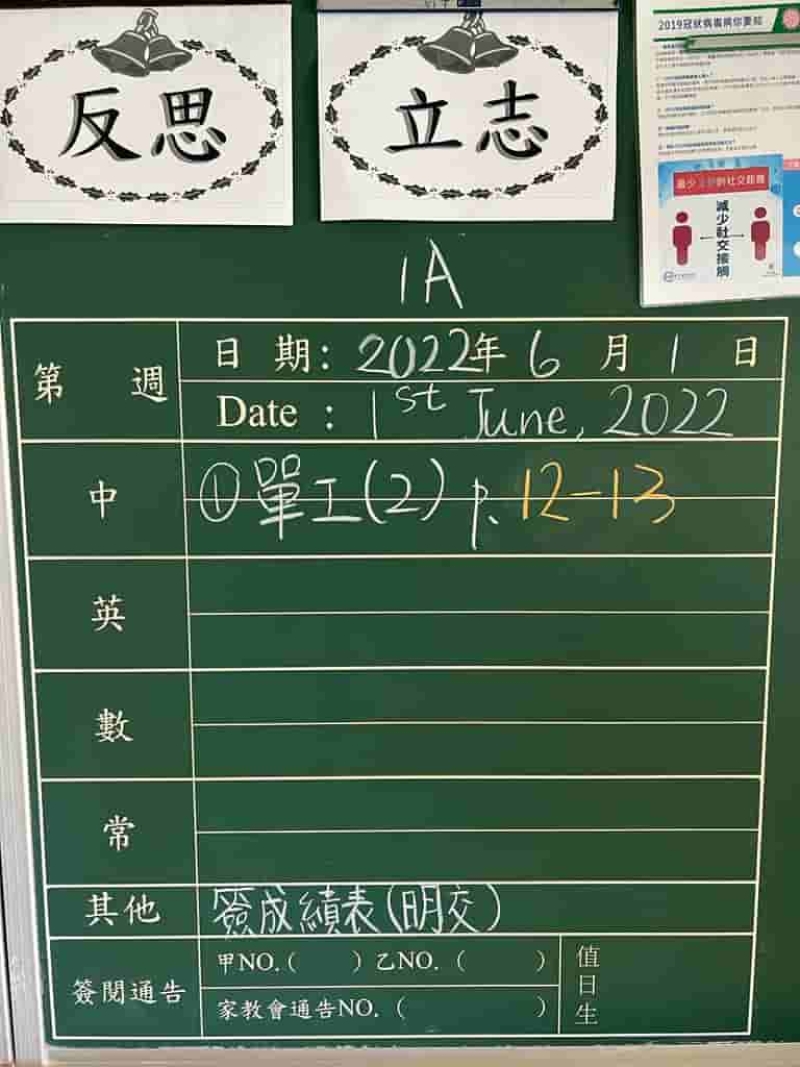 反思
立志
2019冠狀病毒病你要知
減少社交接觸
1A
第 週
日 期: 2022年 6 月 1 日
Date : 1st June, 2022
中
①單工(2) p. 12-13
英
數
常
其他
簽成績表(明交)
簽閱通告
甲NO.( ) 乙NO. ( )
家教會通告NO. ( )
值日生